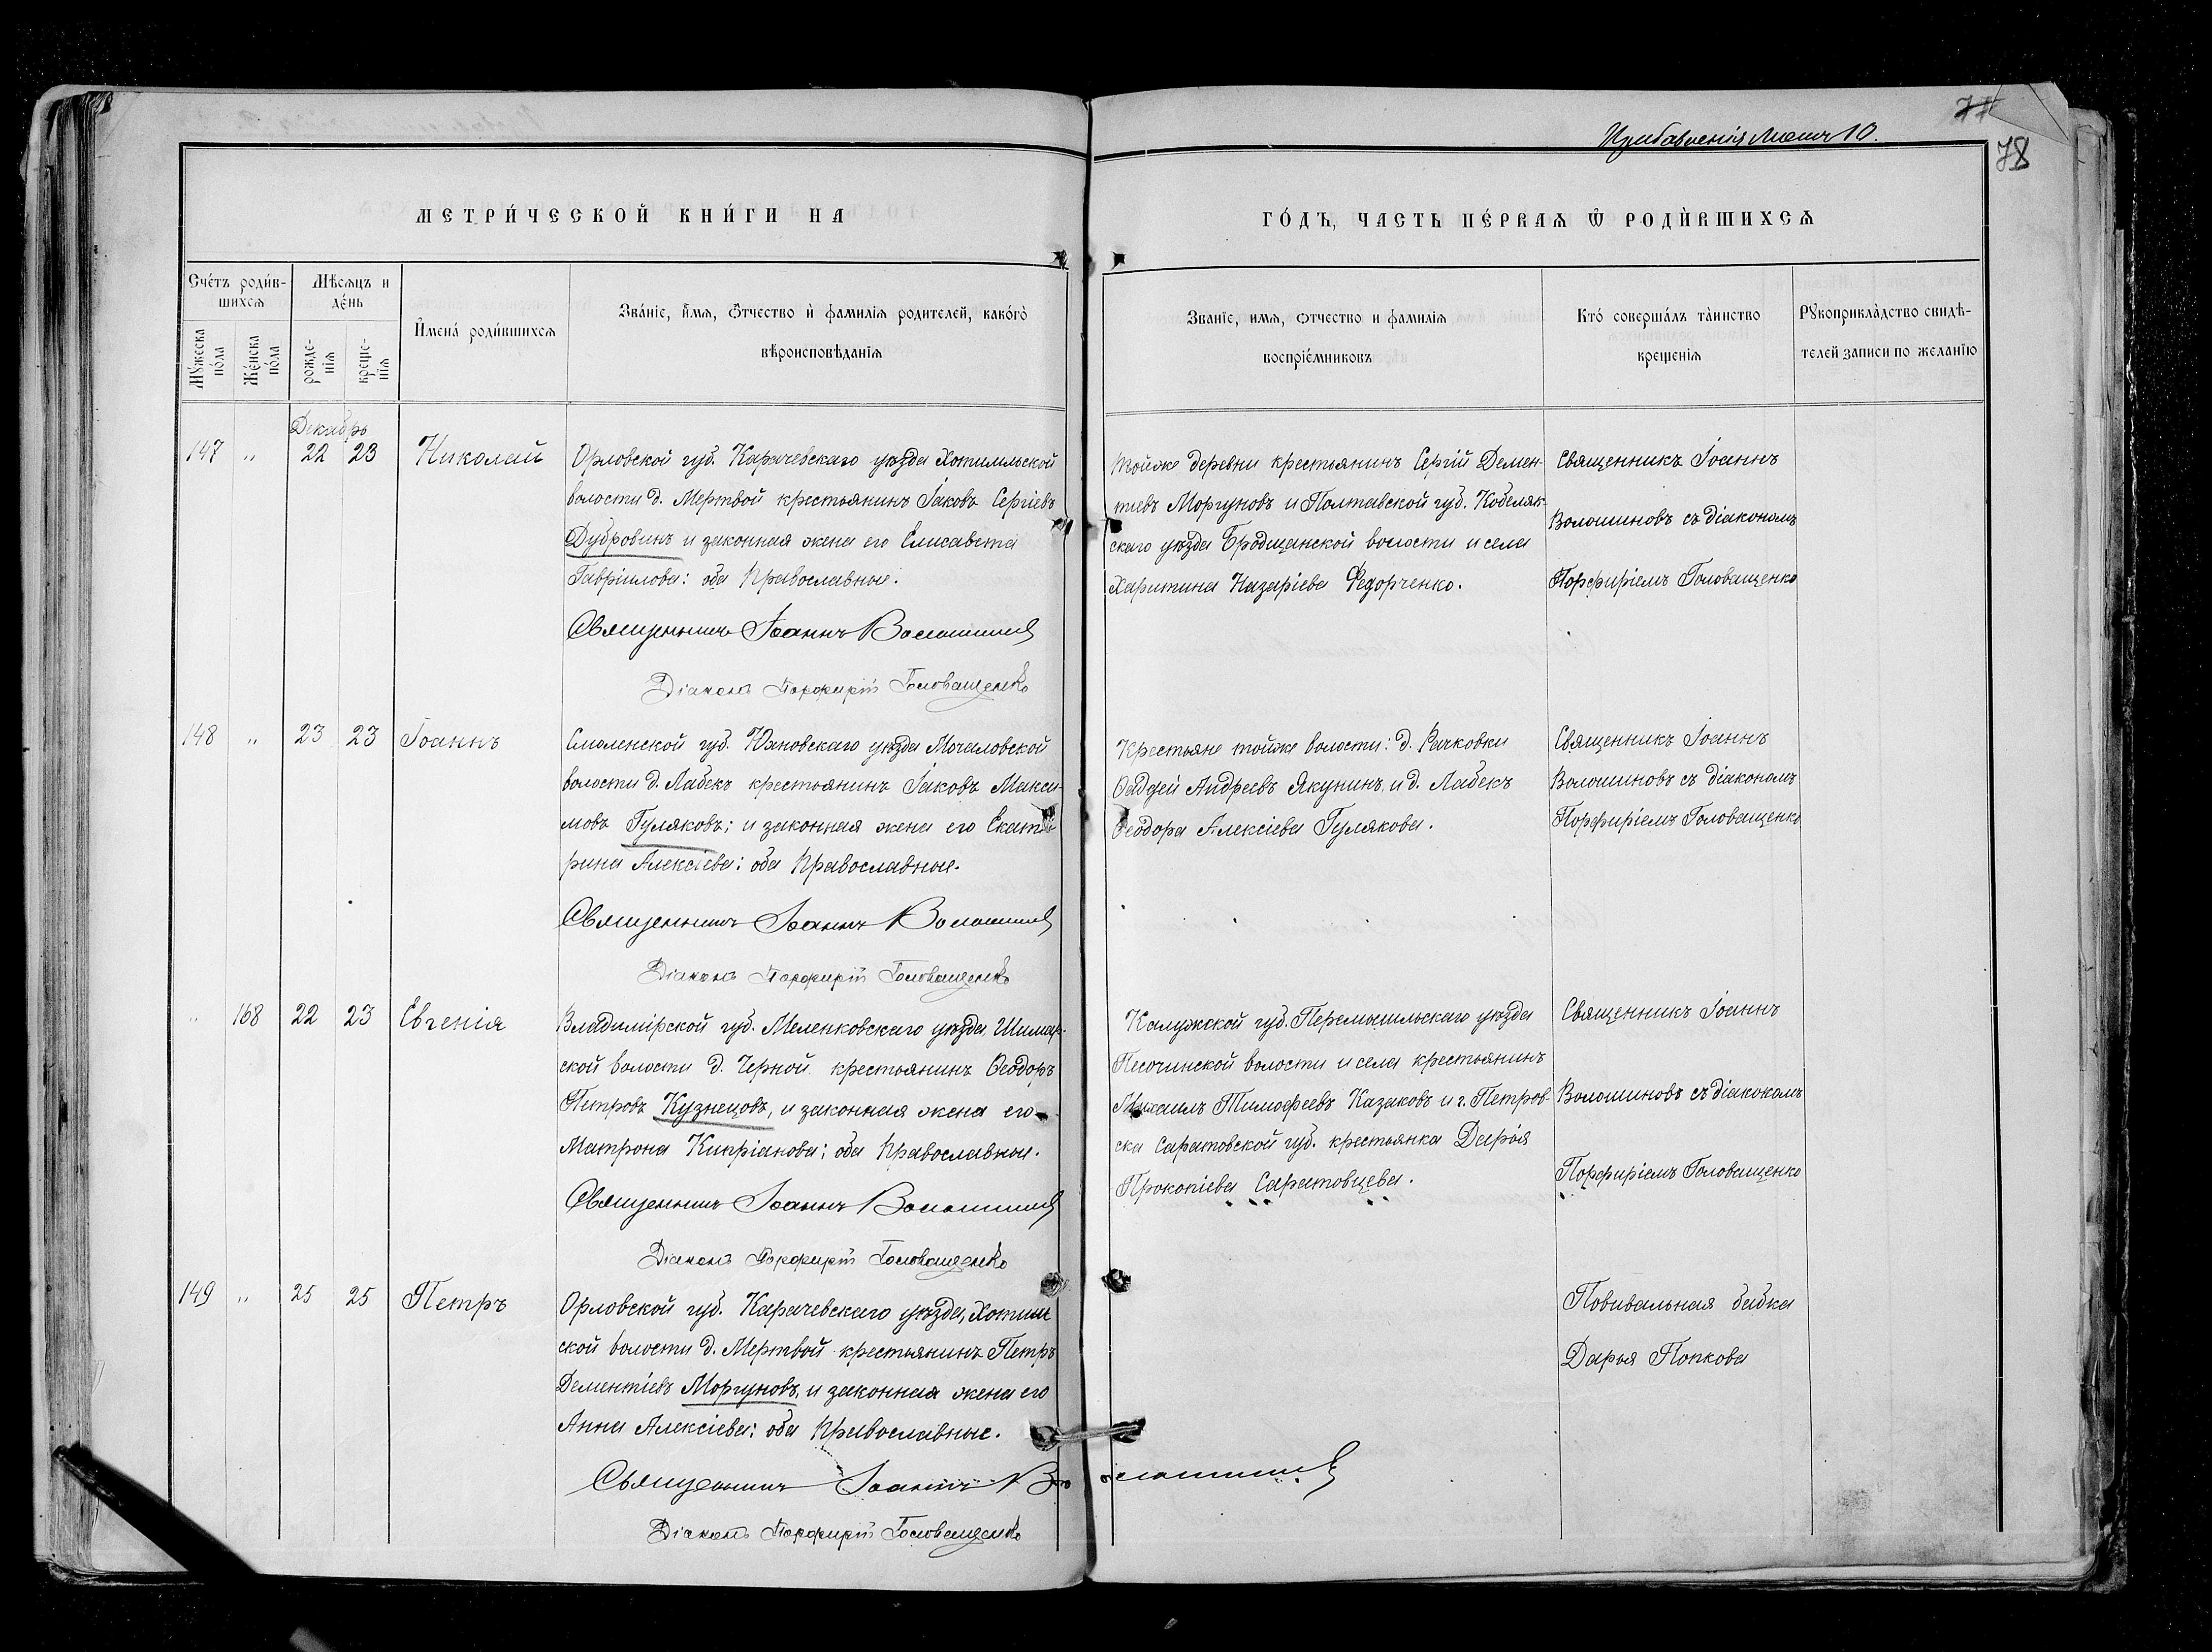 Прибавленія Листъ 10.
71
78
МЕТРИ́ЧЕСКОЙ КНИ́ГИ НА
ГО́ДЪ, ЧАСТЬ ПЕ́РВАЯ Ѿ РОДИ́ВШИХСЯ
Сче́тъ роди́в-
шихся
Мѣсяцъ и
де́нь
Мꙋжеска
по́ла
Же́нска
по́ла
рожде-
нїя
креще-
нїя
И́мена́ роди́вшихся
Зва́нїе, и́мя, ѻ́тчество и́ фамилїя родителей, како́го̀
вѣроисповѣданїя
Званїе, имя, ѻтчество и фамилїя
воспрїе́мниковъ
Кто́ соверша́лъ та́инство
крещенїя
Рꙋкоприкла́дство свидѣ-
телей записи по желанїю
Декабрь
147 „ 22 23 Николай
Орловской губ. Карачевскаго уѣзда Хотимльской
волости д. Мертвой крестьянинъ Іаковъ Сергіевъ
Дубровинъ и законная жена его Елисавета
Гавріилова: оба Православные.
Священникъ Іоаннъ Волошинов
Діаконъ Порфирій Головащенко
тойже деревни крестьянинъ Сергій Демен-
тіевъ Моргуновъ и Полтавской губ. Кобеляк-
скаго уѣзда Бродщанской волости и села
Харитина Назаріева Федорченко.
Священникъ Іоаннъ
Волошиновъ съ діакономъ
Порфиріемъ Головащенко
148 „ 23 23 Іоаннъ
Смоленской губ. Юхновскаго уѣзда Мочаловской
волости д. Лабекъ крестьянинъ Іаковъ Макси-
мовъ Гуляковъ; и законная жена его Екате-
рина Алексіева: оба Православные.
Священникъ Іоаннъ Волошинов
Діаконъ Порфирій Головащенко
Крестьяне тойже волости: д. Рачковки
Фаддей Андреевъ Якунинъ и д. Лабекъ
Ѳеодора Алексіева Гулякова.
Священникъ Іоаннъ
Волошиновъ съ діакономъ
Порфиріемъ Головащенко
„ 168 22 23 Евгенія
Владимірской губ. Меленковскаго уѣзда Шимор-
ской волости д. Черной крестьянинъ Ѳеодоръ
Петровъ Кузнецовъ, и законная жена его
Матрона Кипріанова; оба Православные.
Священникъ Іоаннъ Волошинов
Діаконъ Порфирій Головащенко
Калужской губ. Перемышльскаго уѣзда
Песочинской волости и села крестьянинъ
Михаилъ Тимофеевъ Казаковъ и г. Петров-
ска Саратовской губ. крестьянка Дарья
Прокопіева Саратовцева.
Священникъ Іоаннъ
Волошиновъ съ діакономъ
Порфиріемъ Головащенко
149 „ 25 25 Петръ
Орловской губ. Карачевскаго уѣзда, Хотимль
ской волости д. Мертвой крестьянинъ Петръ
Дементіевъ Моргуновъ, и законная жена его
Анна Алексіева: оба Православные.
Священникъ Іоаннъ Волошинов
Діаконъ Порфирій Головащенко
Повивальная бабка
Дарья Попкова